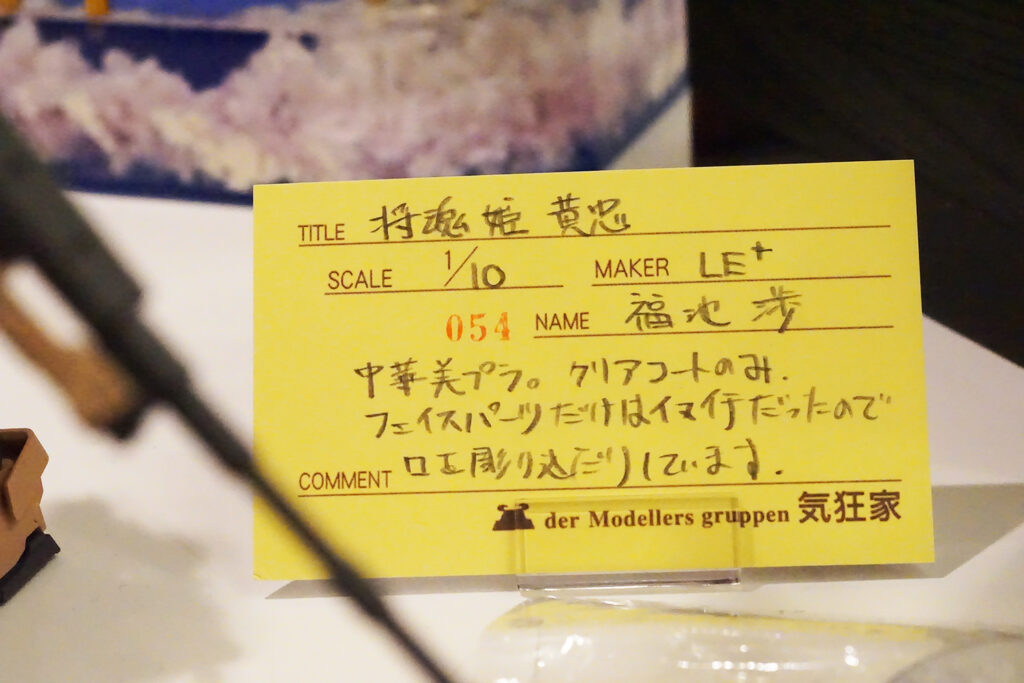 TITLE 将魂姫 黄忠
SCALE 1/10 MAKER LE+
054 NAME 福池 渉
中華美プラ。クリアコートのみ.
フェイスパーツだけはイマイチだったので
口を彫り込だりしています.
COMMENT
der Modellers gruppen 気狂家